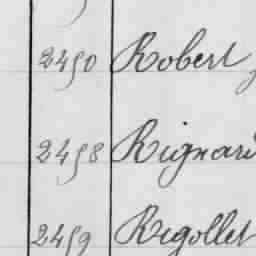 2450 Robert
2458 Rignard
2459 Rigollet